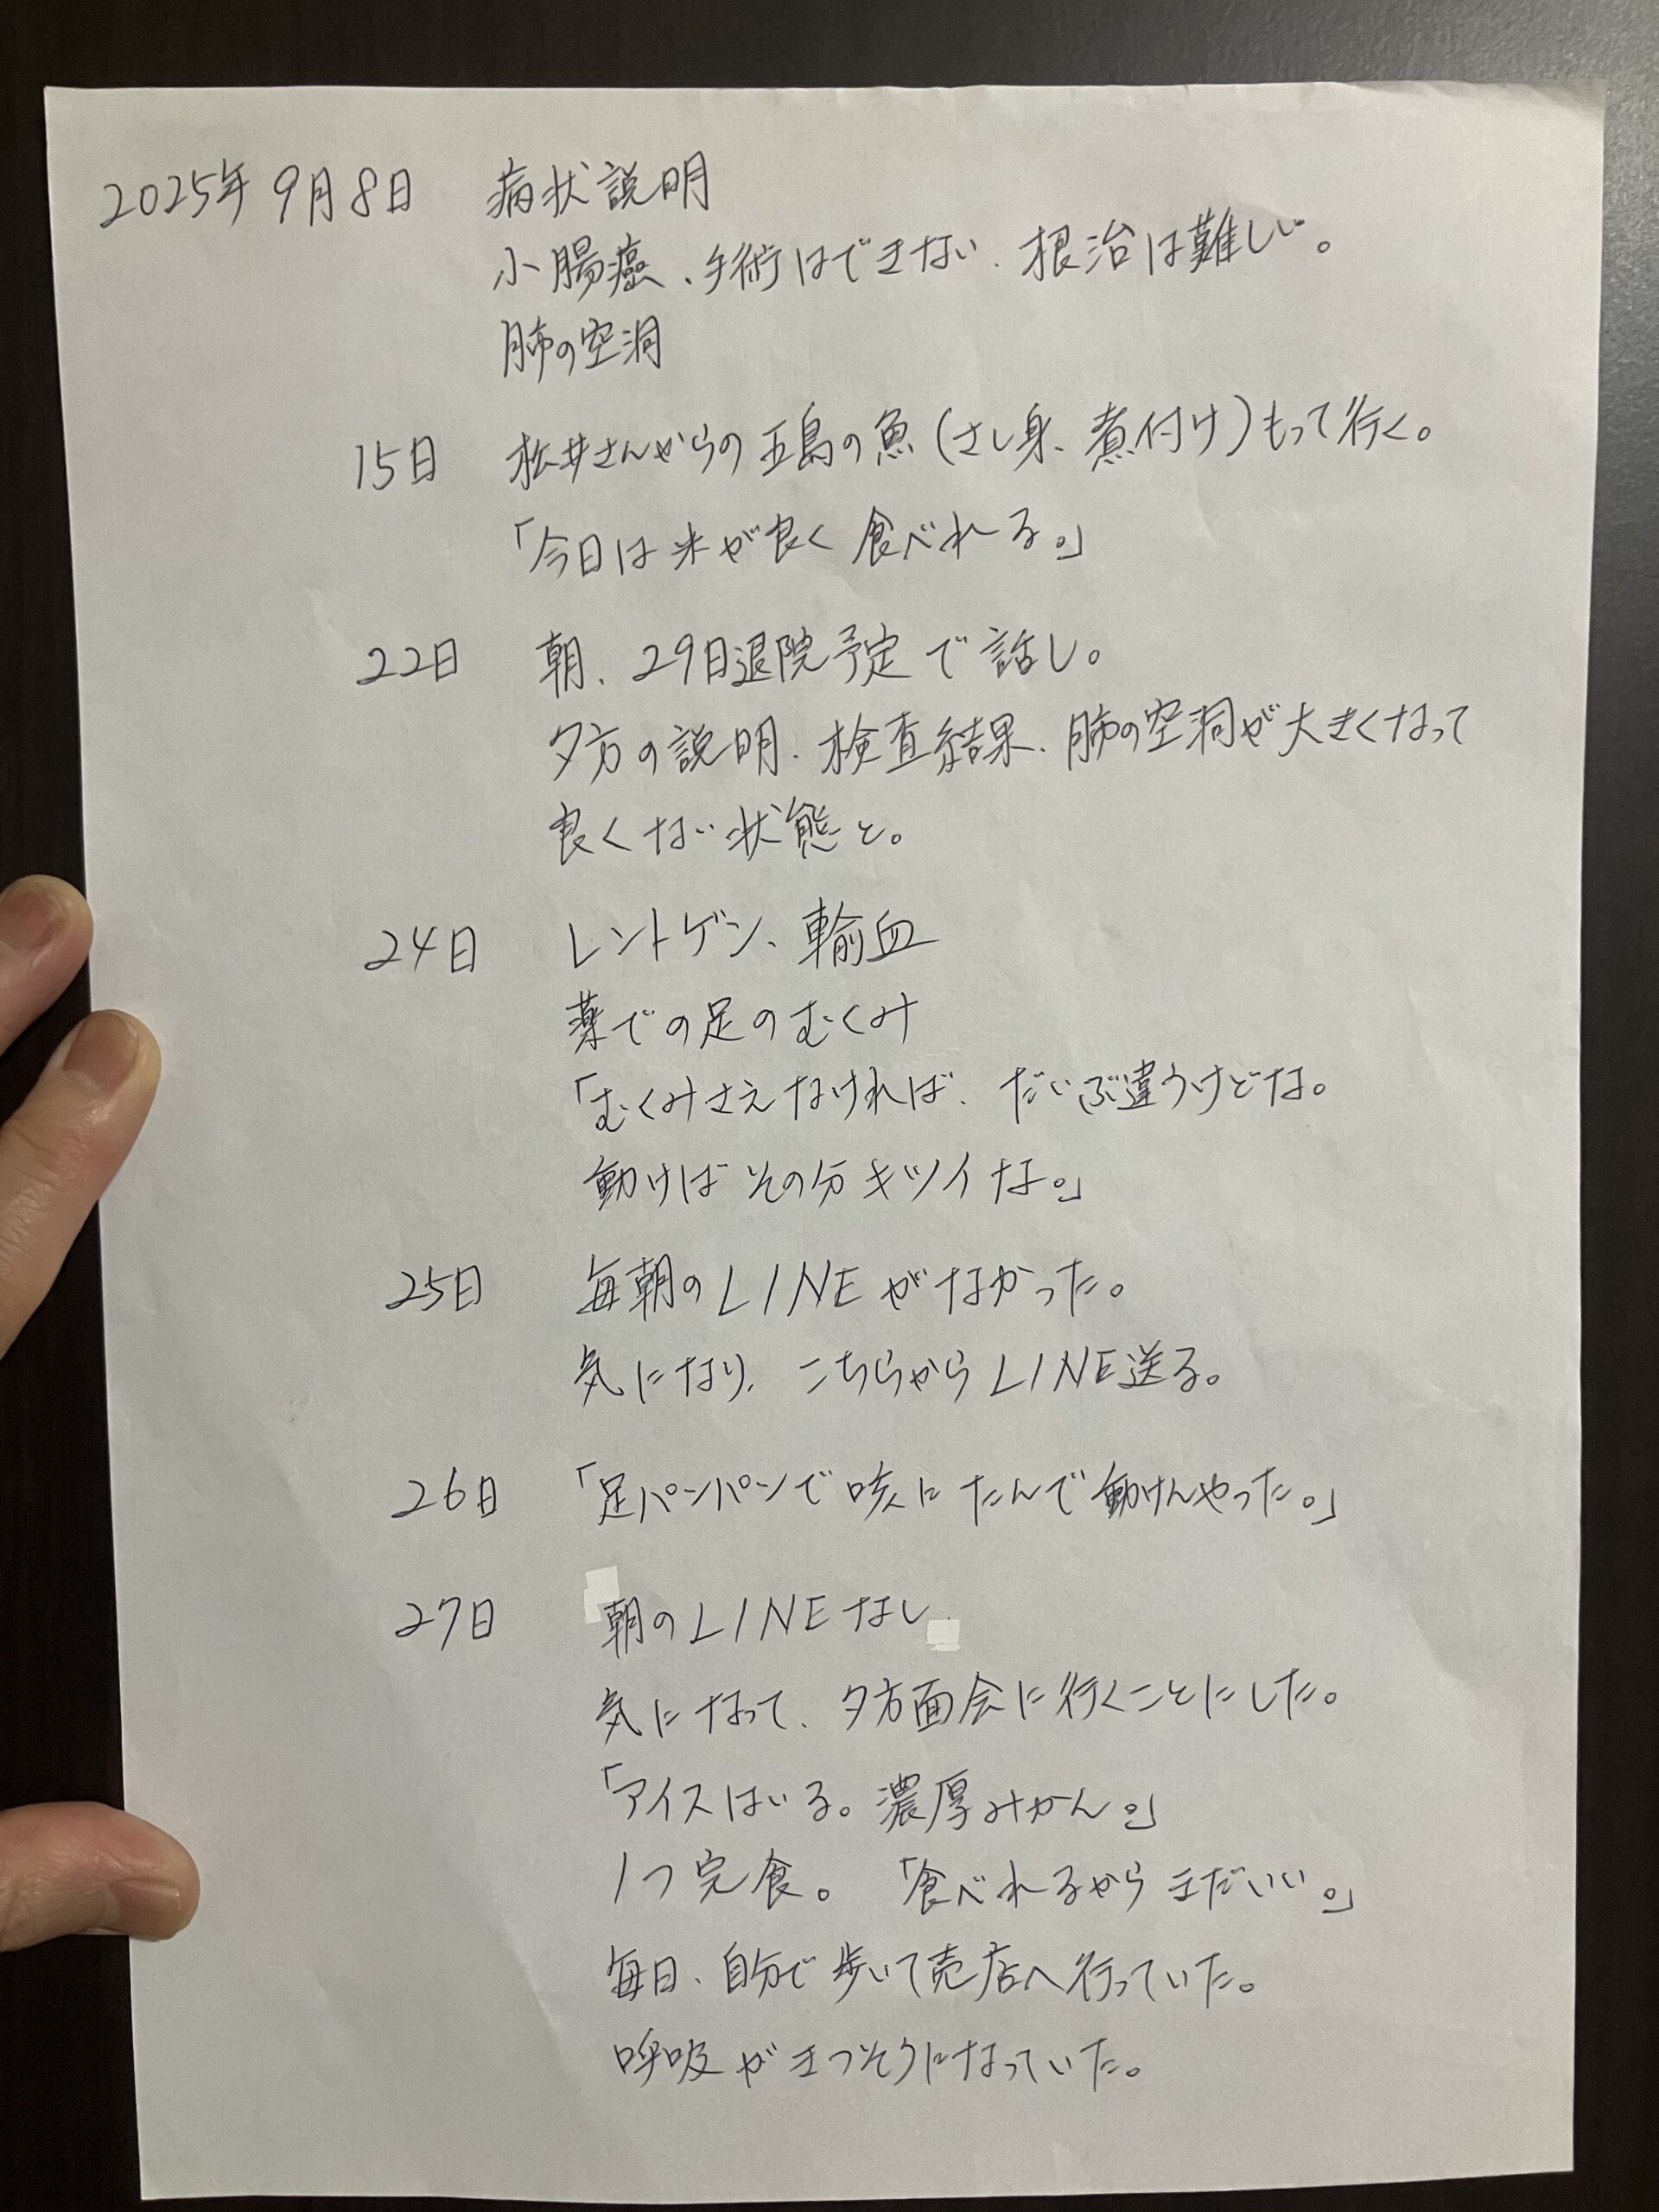 2025年9月8日 病状説明
小腸癌、手術はできない、根治は難しい。
肺の空洞
15日 松井さんからの五島の魚(さし身、煮付け)もって行く。
「今日は米が良く食べれる。」
22日 朝、29日退院予定で話し。
夕方の説明、検査結果、肺の空洞が大きくなって
良くない状態と。
24日 レントゲン、輸血
薬での足のむくみ
「むくみさえなければ、だいぶ違うけどな。
動けばその分キツイな。」
25日 毎朝のLINEがなかった。
気になり、こちらからLINE送る。
26日 「足パンパンで咳にたんで動けんやった。」
27日 朝のLINEなし
気になって、夕方面会に行くことにした。
「アイスはいる。濃厚みかん。」
1つ完食。 「食べれるからまだいい。」
毎日、自分で歩いて売店へ行っていた。
呼吸がきつそうになっていた。